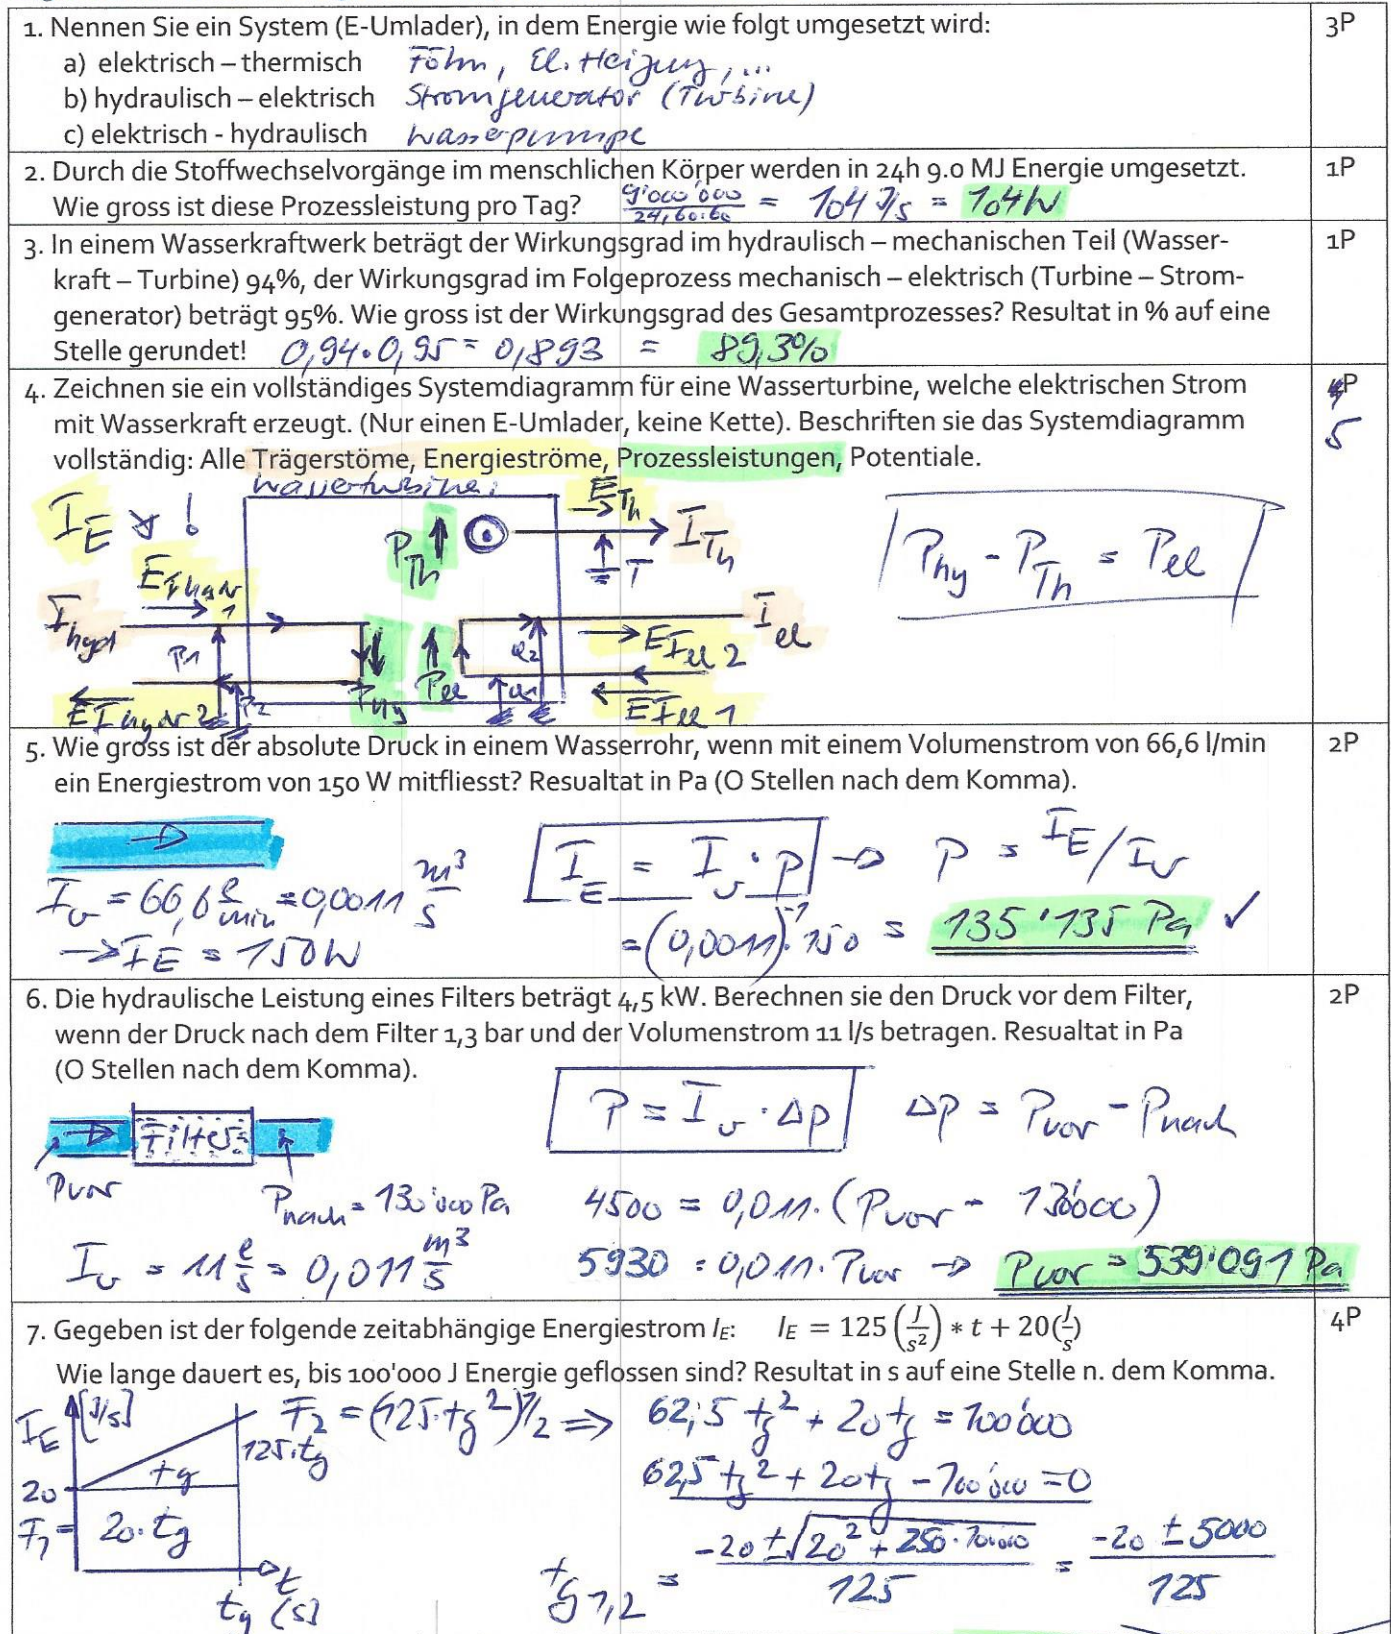 1. Nennen Sie ein System (E-Umlader), in dem Energie wie folgt umgesetzt wird: 3P
a) elektrisch – thermisch Föhn, El. Heizung, ...
b) hydraulisch – elektrisch Stromgenerator (Turbine)
c) elektrisch - hydraulisch Wasserpumpe
2. Durch die Stoffwechselvorgänge im menschlichen Körper werden in 24h 9.0 MJ Energie umgesetzt. 1P
Wie gross ist diese Prozessleistung pro Tag? 9'000'000 / 24·60·60 = 104 J/s = 104W
3. In einem Wasserkraftwerk beträgt der Wirkungsgrad im hydraulisch – mechanischen Teil (Wasser- 1P
kraft – Turbine) 94%, der Wirkungsgrad im Folgeprozess mechanisch – elektrisch (Turbine – Strom-
generator) beträgt 95%. Wie gross ist der Wirkungsgrad des Gesamtprozesses? Resultat in % auf eine
Stelle gerundet! 0,94·0,95 = 0,893 = 89,3%
4. Zeichnen sie ein vollständiges Systemdiagramm für eine Wasserturbine, welche elektrischen Strom 4P
mit Wasserkraft erzeugt. (Nur einen E-Umlader, keine Kette). Beschriften sie das Systemdiagramm 5
vollständig: Alle Trägerstöme, Energieströme, Prozessleistungen, Potentiale.
Wasserturbine
I_E !
E_Th
P_Th
I_Th
T
P_hy - P_Th = P_el
E_I hydr 1
I_hyd
I_el
P1
φ2
E_I el 2
P_hy
P_el
φ1
E_I hydr 2
P2
E_I el 1
5. Wie gross ist der absolute Druck in einem Wasserrohr, wenn mit einem Volumenstrom von 66,6 l/min 2P
ein Energiestrom von 150 W mitfliesst? Resualtat in Pa (O Stellen nach dem Komma).
I_E = I_v · p → P = I_E/I_v
I_v = 66,6 l/min = 0,0011 m³/s
= (0,0011)⁻¹·150 = 135'135 Pa ✓
→ I_E = 150W
6. Die hydraulische Leistung eines Filters beträgt 4,5 kW. Berechnen sie den Druck vor dem Filter, 2P
wenn der Druck nach dem Filter 1,3 bar und der Volumenstrom 11 l/s betragen. Resualtat in Pa
(O Stellen nach dem Komma).
P = I_v · Δp Δp = P_vor - P_nach
Filter
P_vor
P_nach = 130'000 Pa 4500 = 0,011·(P_vor - 130'000)
I_v = 11 l/s = 0,011 m³/s 5930 = 0,011·P_vor → P_vor = 539'091 Pa
7. Gegeben ist der folgende zeitabhängige Energiestrom I_E: I_E = 125 (J/s²) * t + 20(J/s) 4P
Wie lange dauert es, bis 100'000 J Energie geflossen sind? Resultat in s auf eine Stelle n. dem Komma.
I_E [J/s] F_2 = (125·t_g²)1/2 ⇒ 62,5 t_g² + 20 t_g = 100'000
125·t_g
t_g
62,5 t_g² + 20 t_g - 100'000 = 0
20
F_1 = 20·t_g
t_g 1,2 = -20 ± √(20² + 250·100000) / 125 = -20 ± 5000 / 125
t
t_g (s)